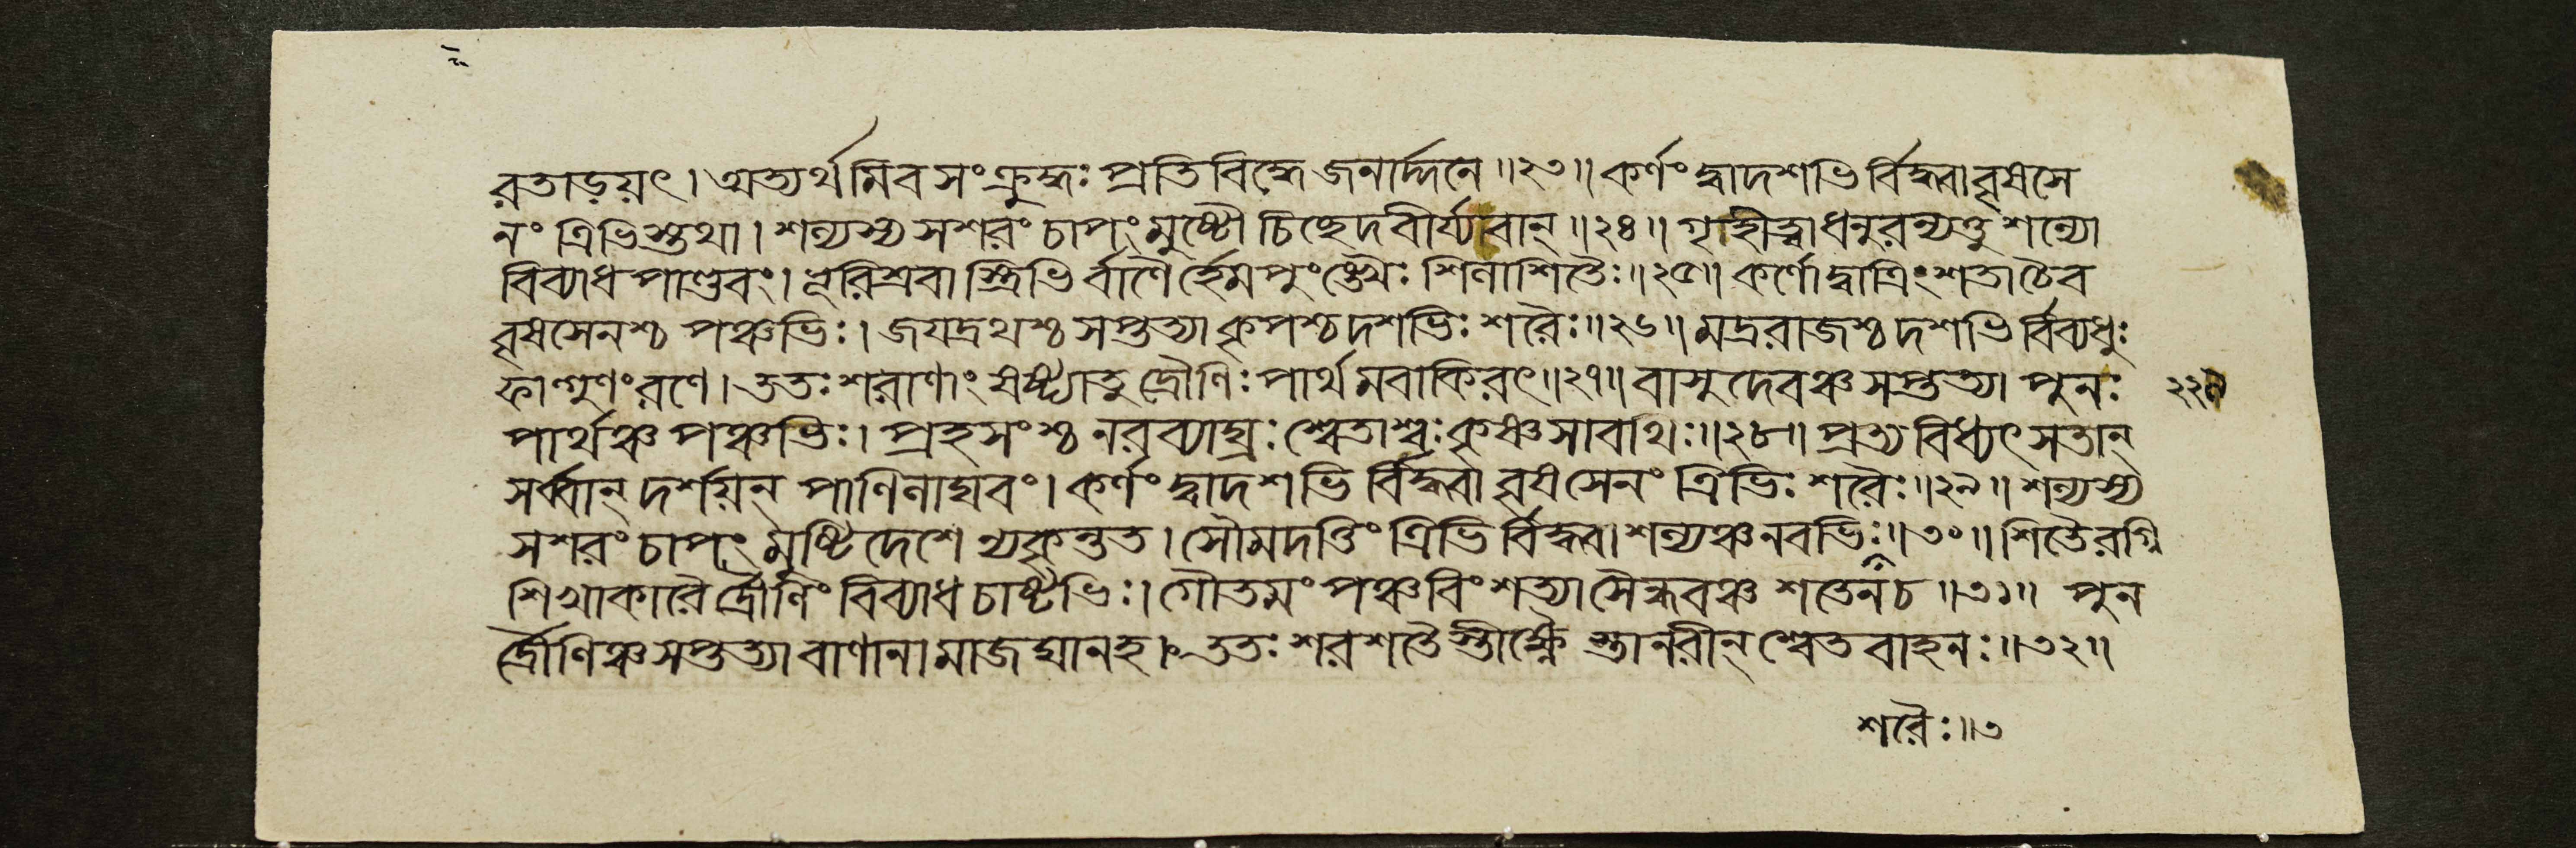 রতাড়য়ৎ। অত্যর্থমিব সংক্রুদ্ধঃ প্রতিবিদ্ধে জনার্দ্দনে॥২৩॥ কর্ণং দ্বাদশভির্বিদ্ধ্বা বৃষসে
নং ত্রিভিস্তথা। শল্যস্য সশরং চাপং মুষ্টৌ চিচ্ছেদ বীর্য্যবান্॥২৪॥ গৃহীত্বা ধনুরন্যত্তু শল্যো
বিব্যাধ পাণ্ডবং। ভূরিশ্রবাস্ত্রিভির্বাণৈর্হেমপুংঙ্খৈঃ শিলাশিতৈঃ॥২৫॥ কর্ণো দ্বাত্রিংশতা চৈব
বৃষসেনশ্চ পঞ্চভিঃ। জয়দ্রথশ্চ সপ্তত্যা কৃপশ্চ দশভিঃ শরৈঃ॥২৬॥ মদ্ররাজশ্চ দশভির্বিব্যধুঃ
ফাল্গুণং রণে। ততঃ শরাণাং ষষ্ট্যা তু দ্রৌণিঃ পার্থমবাকিরৎ॥২৭॥ বাসুদেবঞ্চ সপ্তত্যা পুনঃ
পার্থঞ্চ পঞ্চভিঃ। প্রহসংশ্চ নরব্যাঘ্রঃ শ্বেতাশ্বঃ কৃষ্ণসারথিঃ॥২৮॥ প্রত্যবিধ্যৎ স তান্
সর্ব্বান্ দর্শয়ন্ পাণিলাঘবং। কর্ণং দ্বাদশভির্বিদ্ধ্বা বৃষসেনং ত্রিভিঃ শরৈঃ॥২৯॥ শল্যস্য
সশরং চাপং মুষ্টিদেশে ন্যকৃন্তত। সৌমদত্তিং ত্রিভির্বিদ্ধ্বা শল্যঞ্চ নবভিঃ॥৩০॥ শিতৈরগ্নি
শিখাকারৈর্দ্রৌণিং বিব্যাধ চাষ্টভিঃ। গৌতমং পঞ্চবিংশত্যা সৈন্ধবঞ্চ শতেন চ॥৩১॥ পুন
র্দ্রৌণিঞ্চ সপ্তত্যা বাণানামাজঘান হ। ততঃ শরশতৈস্তীক্ষ্ণৈস্তানরীন্ শ্বেতবাহনঃ॥৩২॥
শরৈঃ॥৩